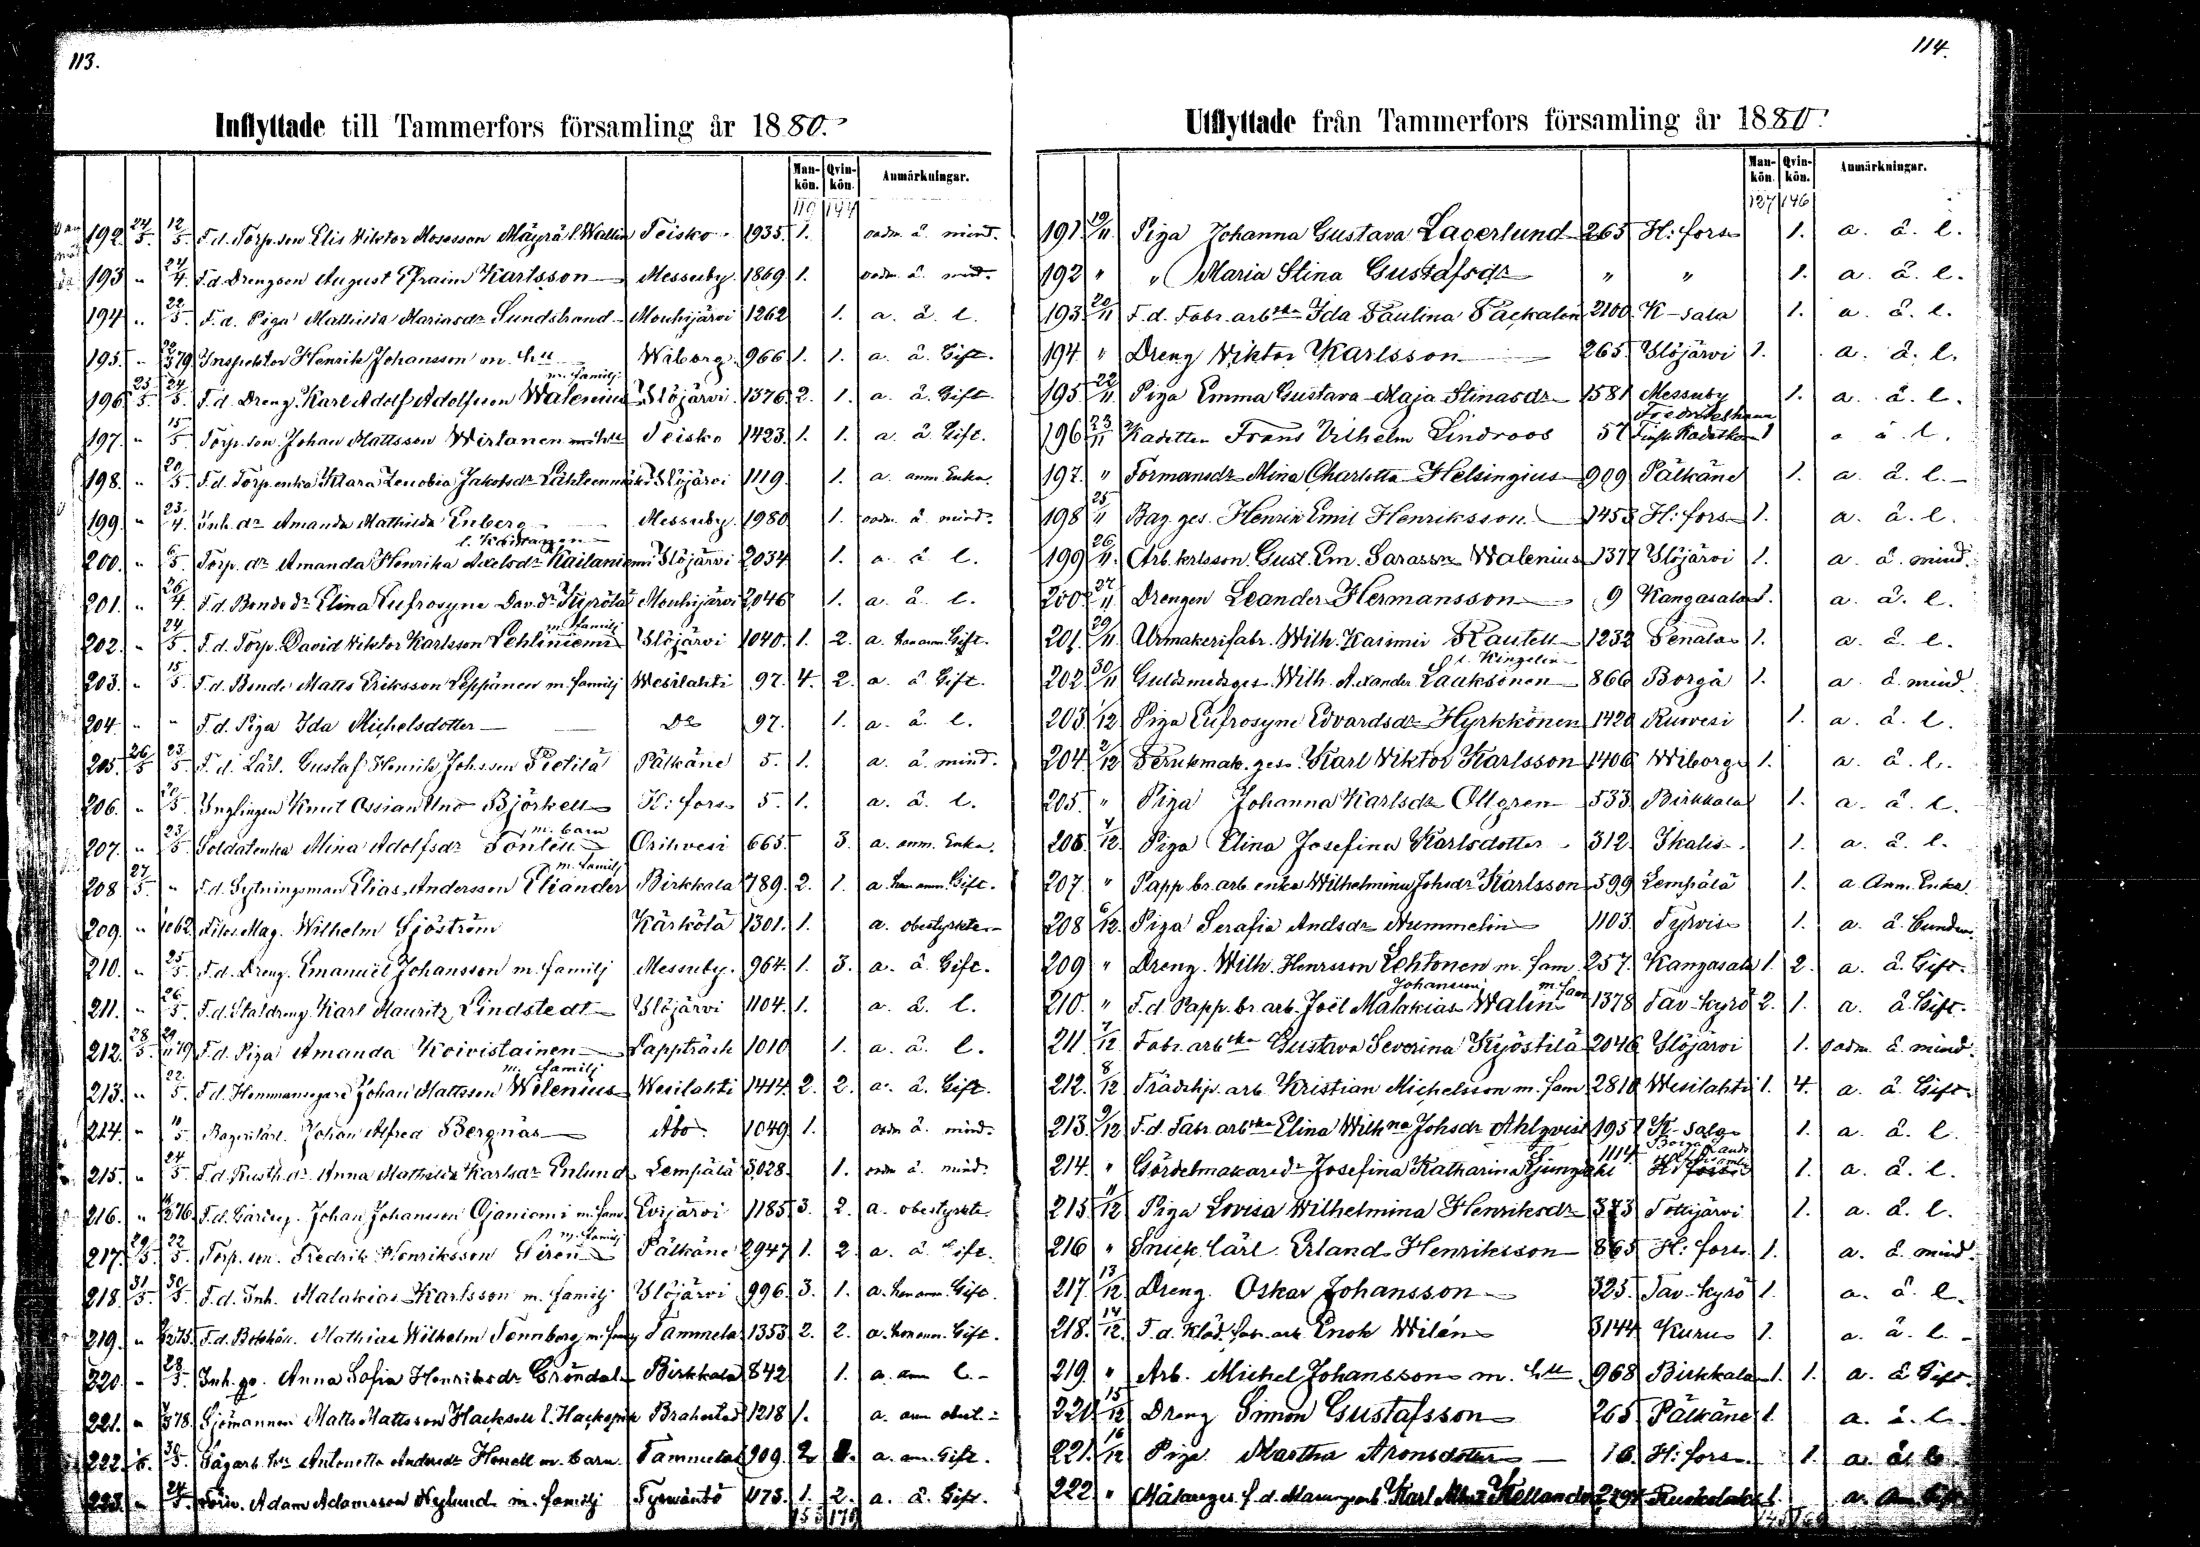 113.
Inflyttade till Tammerfors församling år 1880.
Man-kön. Qvin-kön. Anmärkningar.
110 144
192. 24/5. 12/5. F.d. Torp.son Elis Viktor Mosesson Mäyrä l. Wallin Teisko 1935. 1. oadm. å. mind.
193 " 24/4. F.d. Drengson August Efraim Karlsson Messuby. 1869 1. oadm. å. mind.
194 " 22/5. F.d. Piga Mathilda Mariasdr Sundstrand Mouhijärvi 1262 1. a. å. l.
195. " 79. Inspektor Henrik Johansson m. hu Wiborg. 966 1. 1. a. å. Gift.
m. familj
196 25/5. 24/5. F.d. Dreng. Karl Adolf Adolfsson Walenius Ylöjärvi. 1376. 2. 1. a. å. Gift.
197. " 15/5 Torp. son. Johan Mattsson Wirtanen m. hu Teisko 1423. 1. 1. a. å Gift.
198. " 20/5. F.d. Torp.enka Klara Zenobia Jakobsdr Lähteenmäki Ylöjärvi 1119. 1. a. anm. Enka.
199. " 23/4. Inh. dr Amanda Mathilda Enberg Messuby. 1980 1. oadm. å mind.
l. Koistanen
200. " 6/5. Torp. dr Amanda Henrika Axelsdr Kailaniemi Ylöjärvi 2034 1. a. å l.
201. " 26/4. F.d. Bondedr Elina Eufrosyne Dav.dr Mouhijärvi 2046 1. a. å. l.
m. familj
202. " 24/5. F.d. Torp. David Viktor Karlsson Lehtiniemi Ylöjärvi 1040. 1. 2. a. han anm. Gift.
203. " 15/5. F.d. Bonde Matts Eriksson Leppänen m. familj Wesilahti 97. 4. 2. a. å Gift.
204. " " F.d. Piga Ida Michelsdotter Do 97. 1. a. å. l.
205. 26/5 23/5. F.d. Lärl. Gustaf Henrik Johsson Pietilä Pälkäne 5. 1. a. å. mind.
206. " 20/5. Ynglingen Knut Ossian Uno Björkell H: fors 5. 1. a. å. l.
m. barn
207. " 23/5. Soldatenka Mina Adolfsdr Fonlell Orihvesi 665. 3. a. anm. Enka.
m. familj
208 27/5. " F.d. Sytningsman Elias Andersson Eliander Birkkala 789. 2. 1. a. han anm. Gift.
209. " 62. Filos. Mag. Wilhelm Sjöström Kärkölä 1301. 1. a. obestyrkte
210. " 25/5. F.d. Dreng. Emanuel Johansson m. familj Messuby. 964. 1. 3. a. å Gift.
211. " 26/5. F.d. Staldreng. Karl Mauritz Lindstedt Ylöjärvi 1104. 1. a. å. l.
212. 28/5. 29/11 79 F.d. Piga Amanda Koivistainen Lappträsk 1010 1. a. å. l.
m. familj
213. " 22/5. F.d. Hemmansegare Johan Mattsson Wilenius Wesilahti 1414. 2. 2. a. å Gift.
214. " Bagerilärl. Johan Alfred Bergnäs Åbo. 1049. 1. oadm. å. mind.
215. " 24/5. F.d. Rusth.dr Anna Mathilda Karlsdr Enlund Lempälä 3028. 1. oadm å. mind.
216. " 76. F.d. Johan Johansson Ojaniemi m. fam. Evijärvi 1185 3. 2. a. obestyrkte.
m. familj
217. 29/5. 22/5. Torp. son. Fredrik Henriksson Siren Pälkäne 2947 1. 2 a. å Gift.
218. 31/5. 30/5. F.d. Inh. Malakias Karlsson m. familj Ylöjärvi 996. 3. 1. a. han anm. Gift.
219. " 75. F.d. Bokhåll. Mathias Wilhelm Tennberg m. familj Tammela 1353 2. 2. a. han anm. Gift.
220. " 28/5. Inh. Anna Sofia Henriksdr Gröndal Birkkala 842 1. a. anm l.
221. " 78. Sjömannen Matts Mattsson Hacksell l. Brahestad 1218 1. a. anm obest.
222. 30/5. Sågarb. Antonetta Andersdr m. barn. Tammela 909. 2 a. anm. Gift.
223. " 24/5. Adam Adamsson Nylund m. familj Tyrwäntö 1175. 1. 2. a. å. Gift.
114.
Utflyttade från Tammerfors församling år 1880.
Man-kön. Qvin-kön. Anmärkningar.
137 146
191. 19/11. Piga Johanna Gustava Lagerlund 265 H: fors 1. a. å. l.
192 " " Maria Stina Gustafsdr " " 1. a. å. l.
193. 20/11 F.d. Fabr. arbska Ida Paulina Päckalén 2100 K-sala 1. a. å. l.
194 " Dreng Viktor Karlsson 265. Ylöjärvi 1. a. å. l.
195 22/11. Piga Emma Gustava Maja Stinasdr 1581 Messuby 1. a. å. l.
Fredrikshamn
196 23/11 Kadetten Frans Vilhelm Lindroos 57 Finsk. Kadettkår 1 a å l.
197. " Formansdr Mina Charlotta Helsingius 909 Pälkäne 1. a å. l.
198 25/11 Bag. ges. Henrik Emil Henriksson. 1453 H: fors 1. a. å. l.
199 26/11. Arb. karlsson. Gust. Em. Sarasson Walenius 1377 Ylöjärvi 1. a. å. mind.
200 27/11 Drengen Leander Hermansson 9 Kangasala 1. a. å. l.
201. 29/11 Urmakerifabr. Wilh. Kasimir Rautell 1232 Penala 1. a. å. l.
l. Kingelin
202. 30/11 Guldsmedsges. Wilh. Alexander Laaksonen 866 Borgå 1. a å mind.
203. 1/12 Piga Eufrosyne Edvardsdr Hyrkkönen 1420 Ruovesi 1. a. å. l.
204. 2/12 Perukmak. ges. Karl Viktor Karlsson 1406 Wiborg 1. a. å. l.
205. " Piga Johanna Karlsdr Ollgren 533 Birkkala 1. a. å. l.
206. 4/12. Piga Elina Josefina Karlsdotter 312. Ikalis 1. a. å. l.
207. " Papp.br. arb. enka Wilhelmina Johsdr Karlsson 599 Lempälä 1. a. Anm. Enka.
208 6/12. Piga Serafia Andsdr Nummelin 1103. Tyrvis 1. a. å. bunden.
209 " Dreng. Wilh. Henrsson Lehtonen m. fam 257. Kangasala 1. 2. a. å. Gift.
Johansson m. fam
210. " F.d. Papp.br. arb. Joël Malakias Walin 1378 Tav-kyrö 2. 1. a. å. Gift.
211 7/12 Fabr. arbska Gustava Severina Kyöstilä 2046 Ylöjärvi 1. oadm. å mind.
212. 8/12 Trädslip. arb. Kristian Michelsson m. fam 2810 Wesilahti 1. 4. a. å Gift.
213. 9/12 F.d. Fabr. arbska Elina Wilhna Johsdr Ahlqvist 1957 K-sala 1. a. å. l.
Borgå Lands
214. " Gördelmakaredr Josefina Katharina Ljungqvist 1114 H: fors 1. a. å. l.
215. 11/12 Piga Lovisa Wilhelmina Henriksdr 373 Tottijärvi 1. a. å. l.
216 " Snick. lärl. Erland Henriksson 865 H: fors. 1. a. å mind.
217. 13/12. Dreng. Oskar Johansson 325. Tav-kyrö 1. a. å l.
218. 14/12. F.d. Kläd. fabr. arb. Enok Wilén 3144 Kuru 1. a. å. l.
219. " Arb. Michel Johansson m. hu 968 Birkkala 1. 1. a. å Gift.
220 15/12 Dreng Simon Gustafsson 265 Pälkäne 1. a. å. l.
221. 16/12 Piga Martha Aronsdotter 16. H: fors 1. a. å. l.
222 " f.d. Karl Kellander 2294 Ruskeala 1.